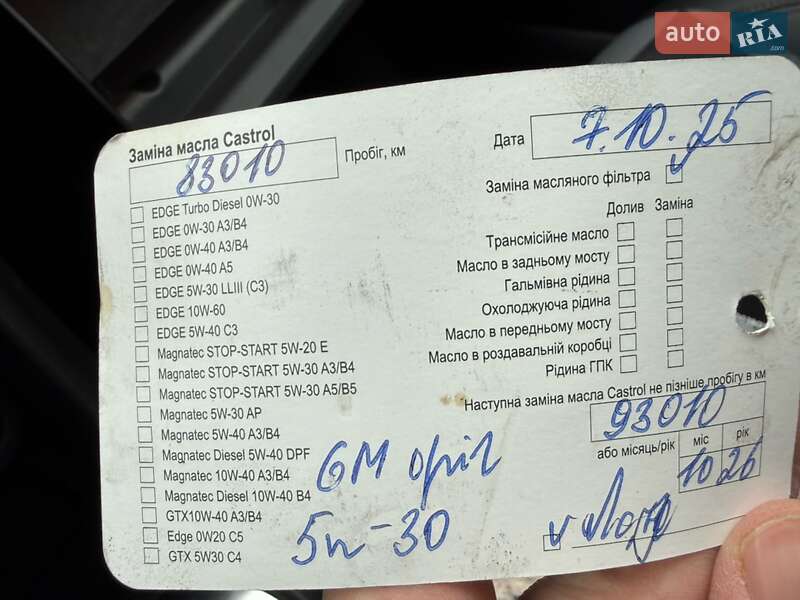 auto RIA
Заміна масла Castrol
83010 Пробіг, км
Дата 7.10.25
Заміна масляного фільтра
Долив Заміна
Трансмісійне масло
Масло в задньому мосту
Гальмівна рідина
Охолоджуюча рідина
Масло в передньому мосту
Масло в роздавальній коробці
Рідина ГПК
EDGE Turbo Diesel 0W-30
EDGE 0W-30 A3/B4
EDGE 0W-40 A3/B4
EDGE 0W-40 A5
EDGE 5W-30 LLIII (C3)
EDGE 10W-60
EDGE 5W-40 C3
Magnatec STOP-START 5W-20 E
Magnatec STOP-START 5W-30 A3/B4
Magnatec STOP-START 5W-30 A5/B5
Magnatec 5W-30 AP
Magnatec 5W-40 A3/B4
Magnatec Diesel 5W-40 DPF
Magnatec 10W-40 A3/B4
Magnatec Diesel 10W-40 B4
GTX10W-40 A3/B4
Edge 0W20 C5
GTX 5W30 C4
GM оріг
5w-30
Наступна заміна масла Castrol не пізніше пробігу в км
93010
або місяць/рік
міс рік
10 26